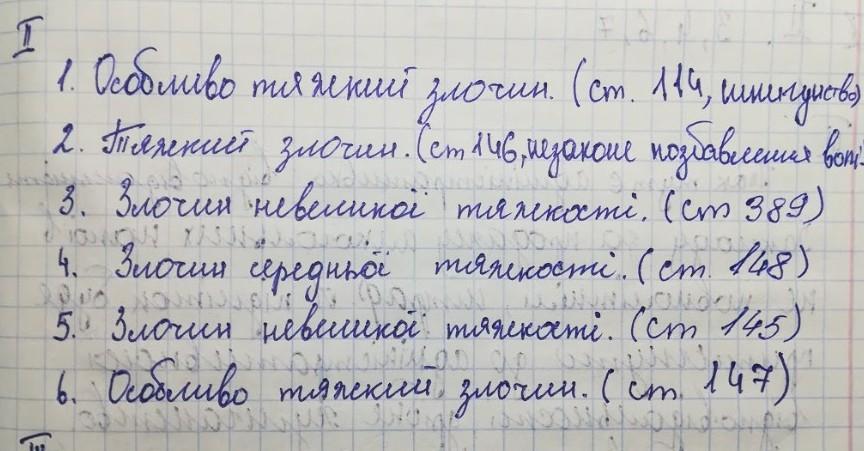 II
1. Особливо тяжкий злочин. (ст. 114, шпигунство)
2. Тяжкий злочин. (ст 146, незаконе позбавлення волі.
3. Злочин невеликої тяжкості. (ст 389)
4. Злочин середньої тяжкості. (ст. 148)
5. Злочин невеликої тяжкості. (ст 145)
6. Особливо тяжкий злочин. (ст. 147)
III